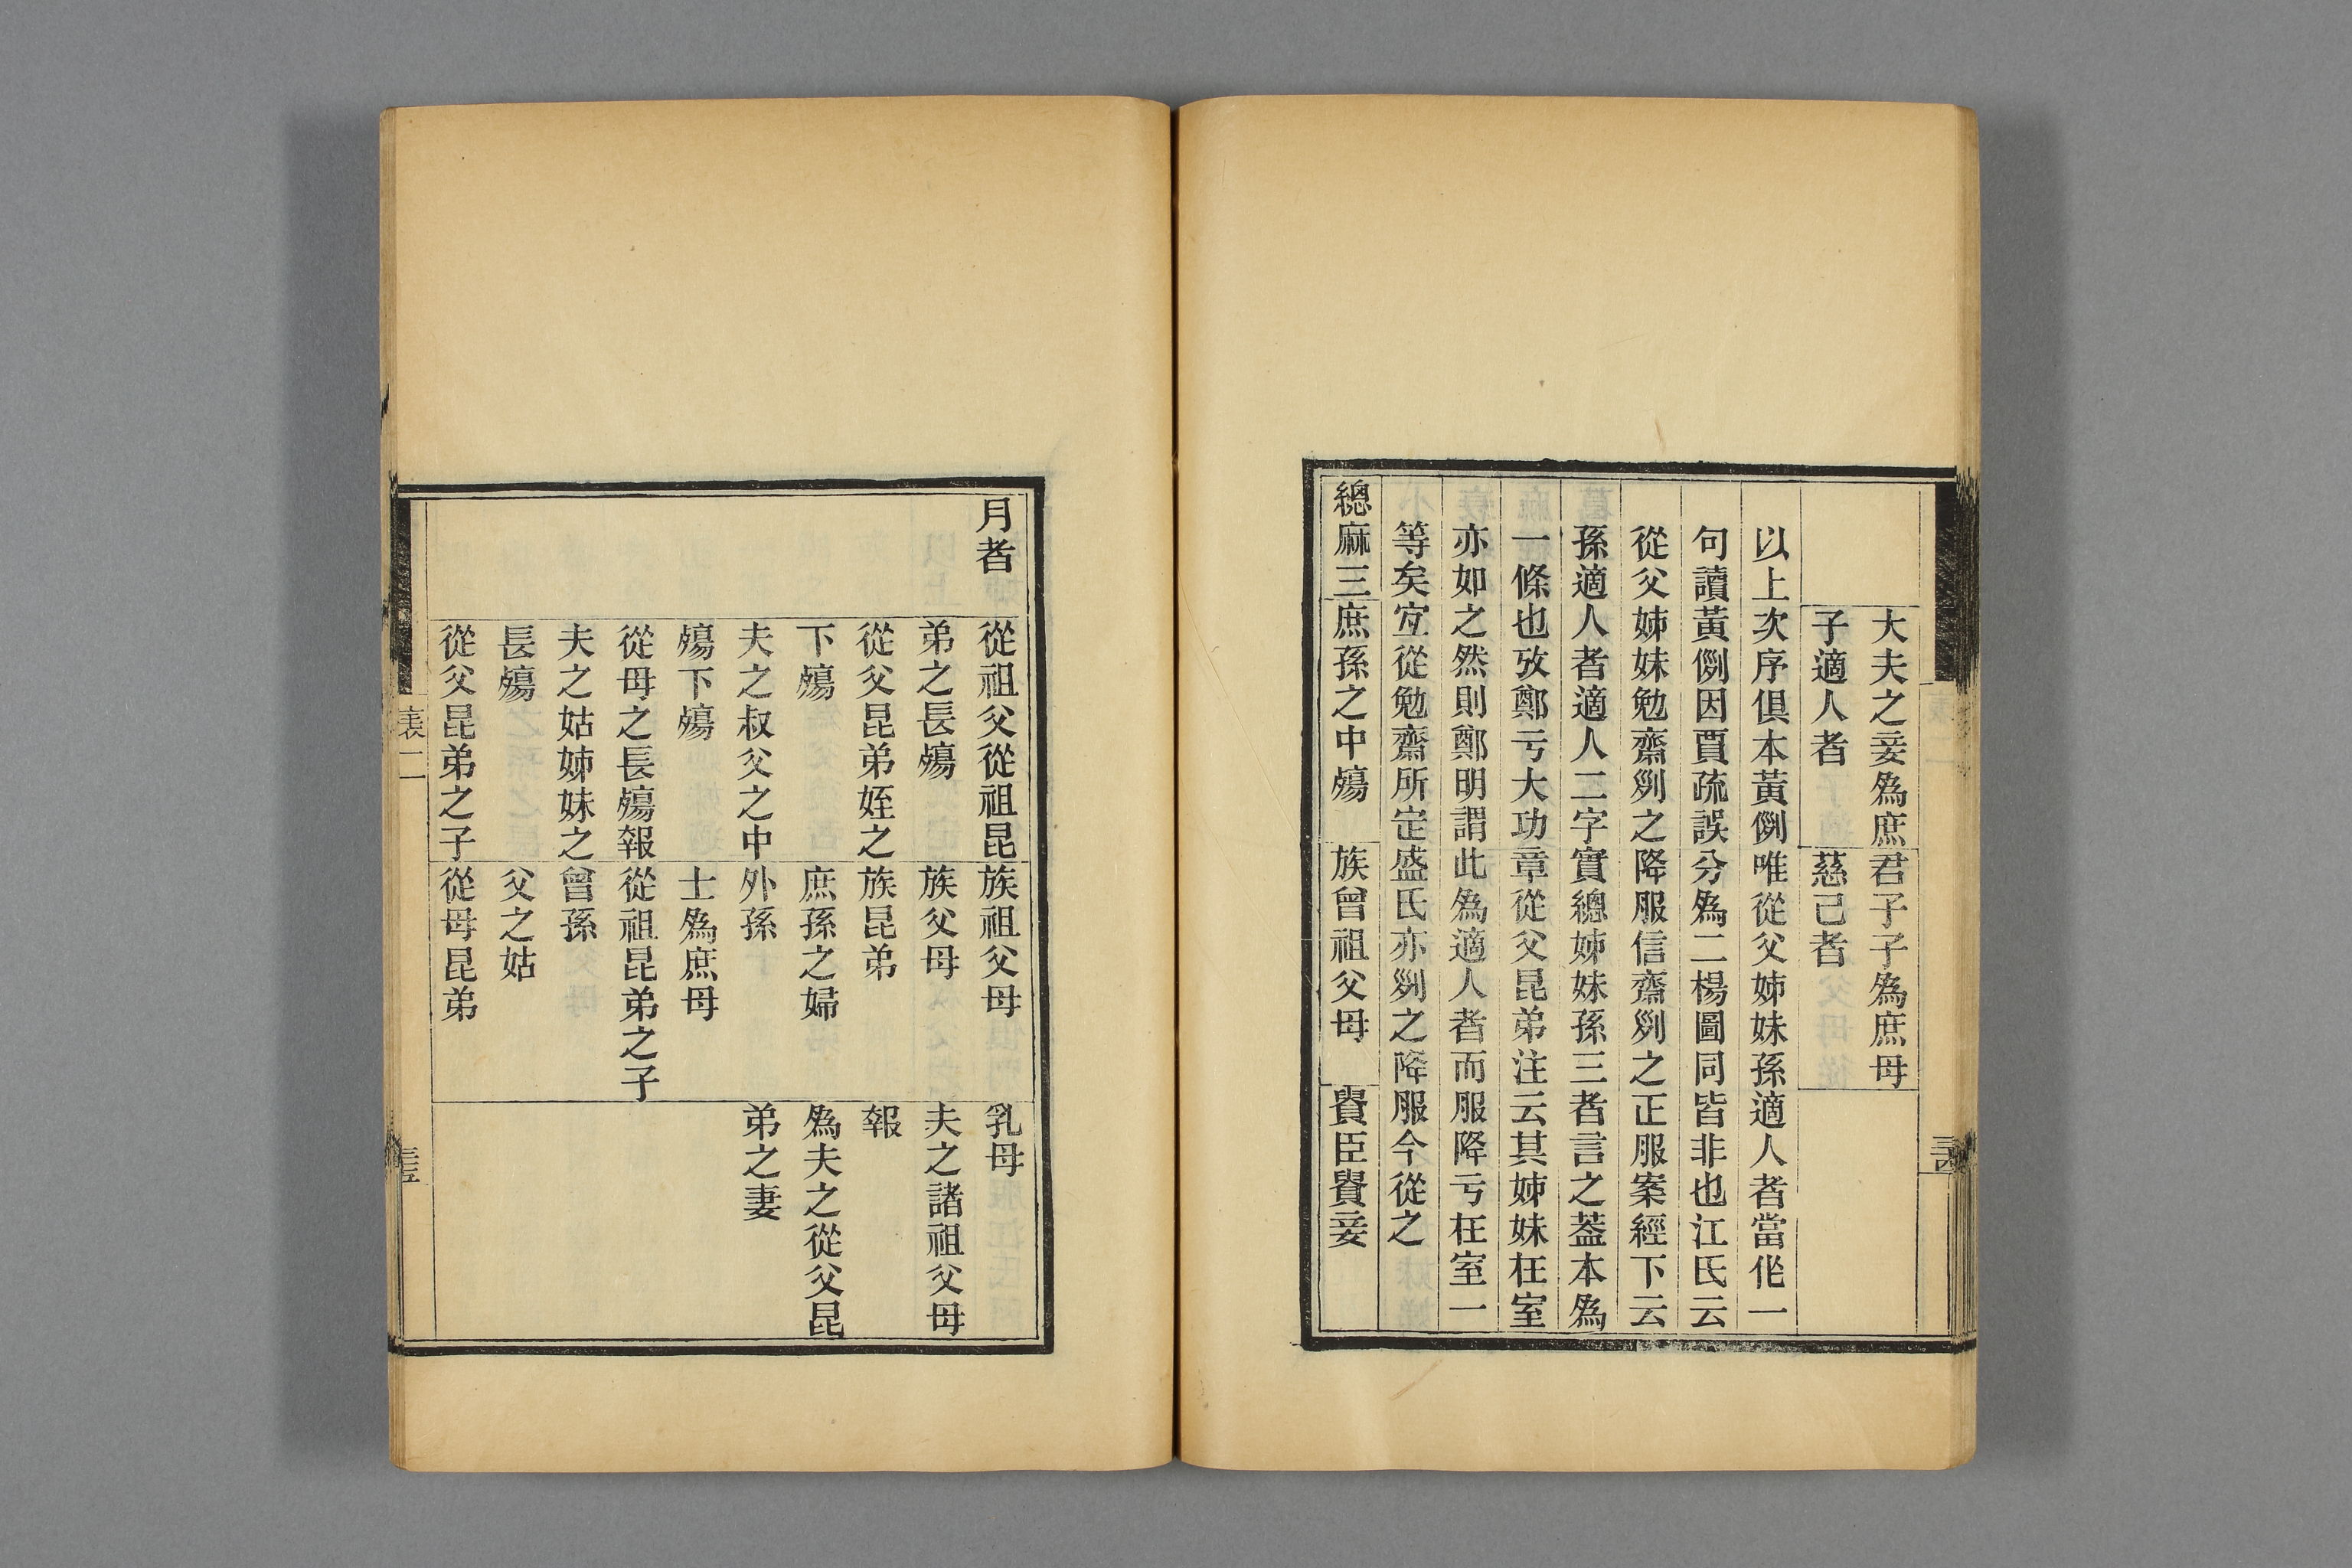 大夫之妾爲庶　君子子爲庶母
子適人者　慈己者
以上次序俱本黃例唯從父姊妹孫適人者當作一
句讀黃例因賈疏誤分爲二楊圖同皆非也江氏云
從父姊妹勉齋列之降服信齋列之正服案經下云
孫適人者適人二字實總姊妹孫三者言之葢本爲
一條也攷鄭亏大功章從父昆弟注云其姊妹在室
亦如之然則鄭明謂此爲適人者而服降亏在室一
等矣宜從勉齋所定盛氏亦列之降服今從之
緦麻三　庶孫之中殤　族曾祖父母　貴臣貴妾
月者　從祖父從祖昆　族祖父母　乳母
弟之長殤　族父母　夫之諸祖父母
從父昆弟姪之　族昆弟　報
下殤　庶孫之婦　爲夫之從父昆
夫之叔父之中　外孫　弟之妻
殤下殤　士爲庶母
從母之長殤報　從祖昆弟之子
夫之姑姊妹之　曾孫
長殤　父之姑
從父昆弟之子　從母昆弟